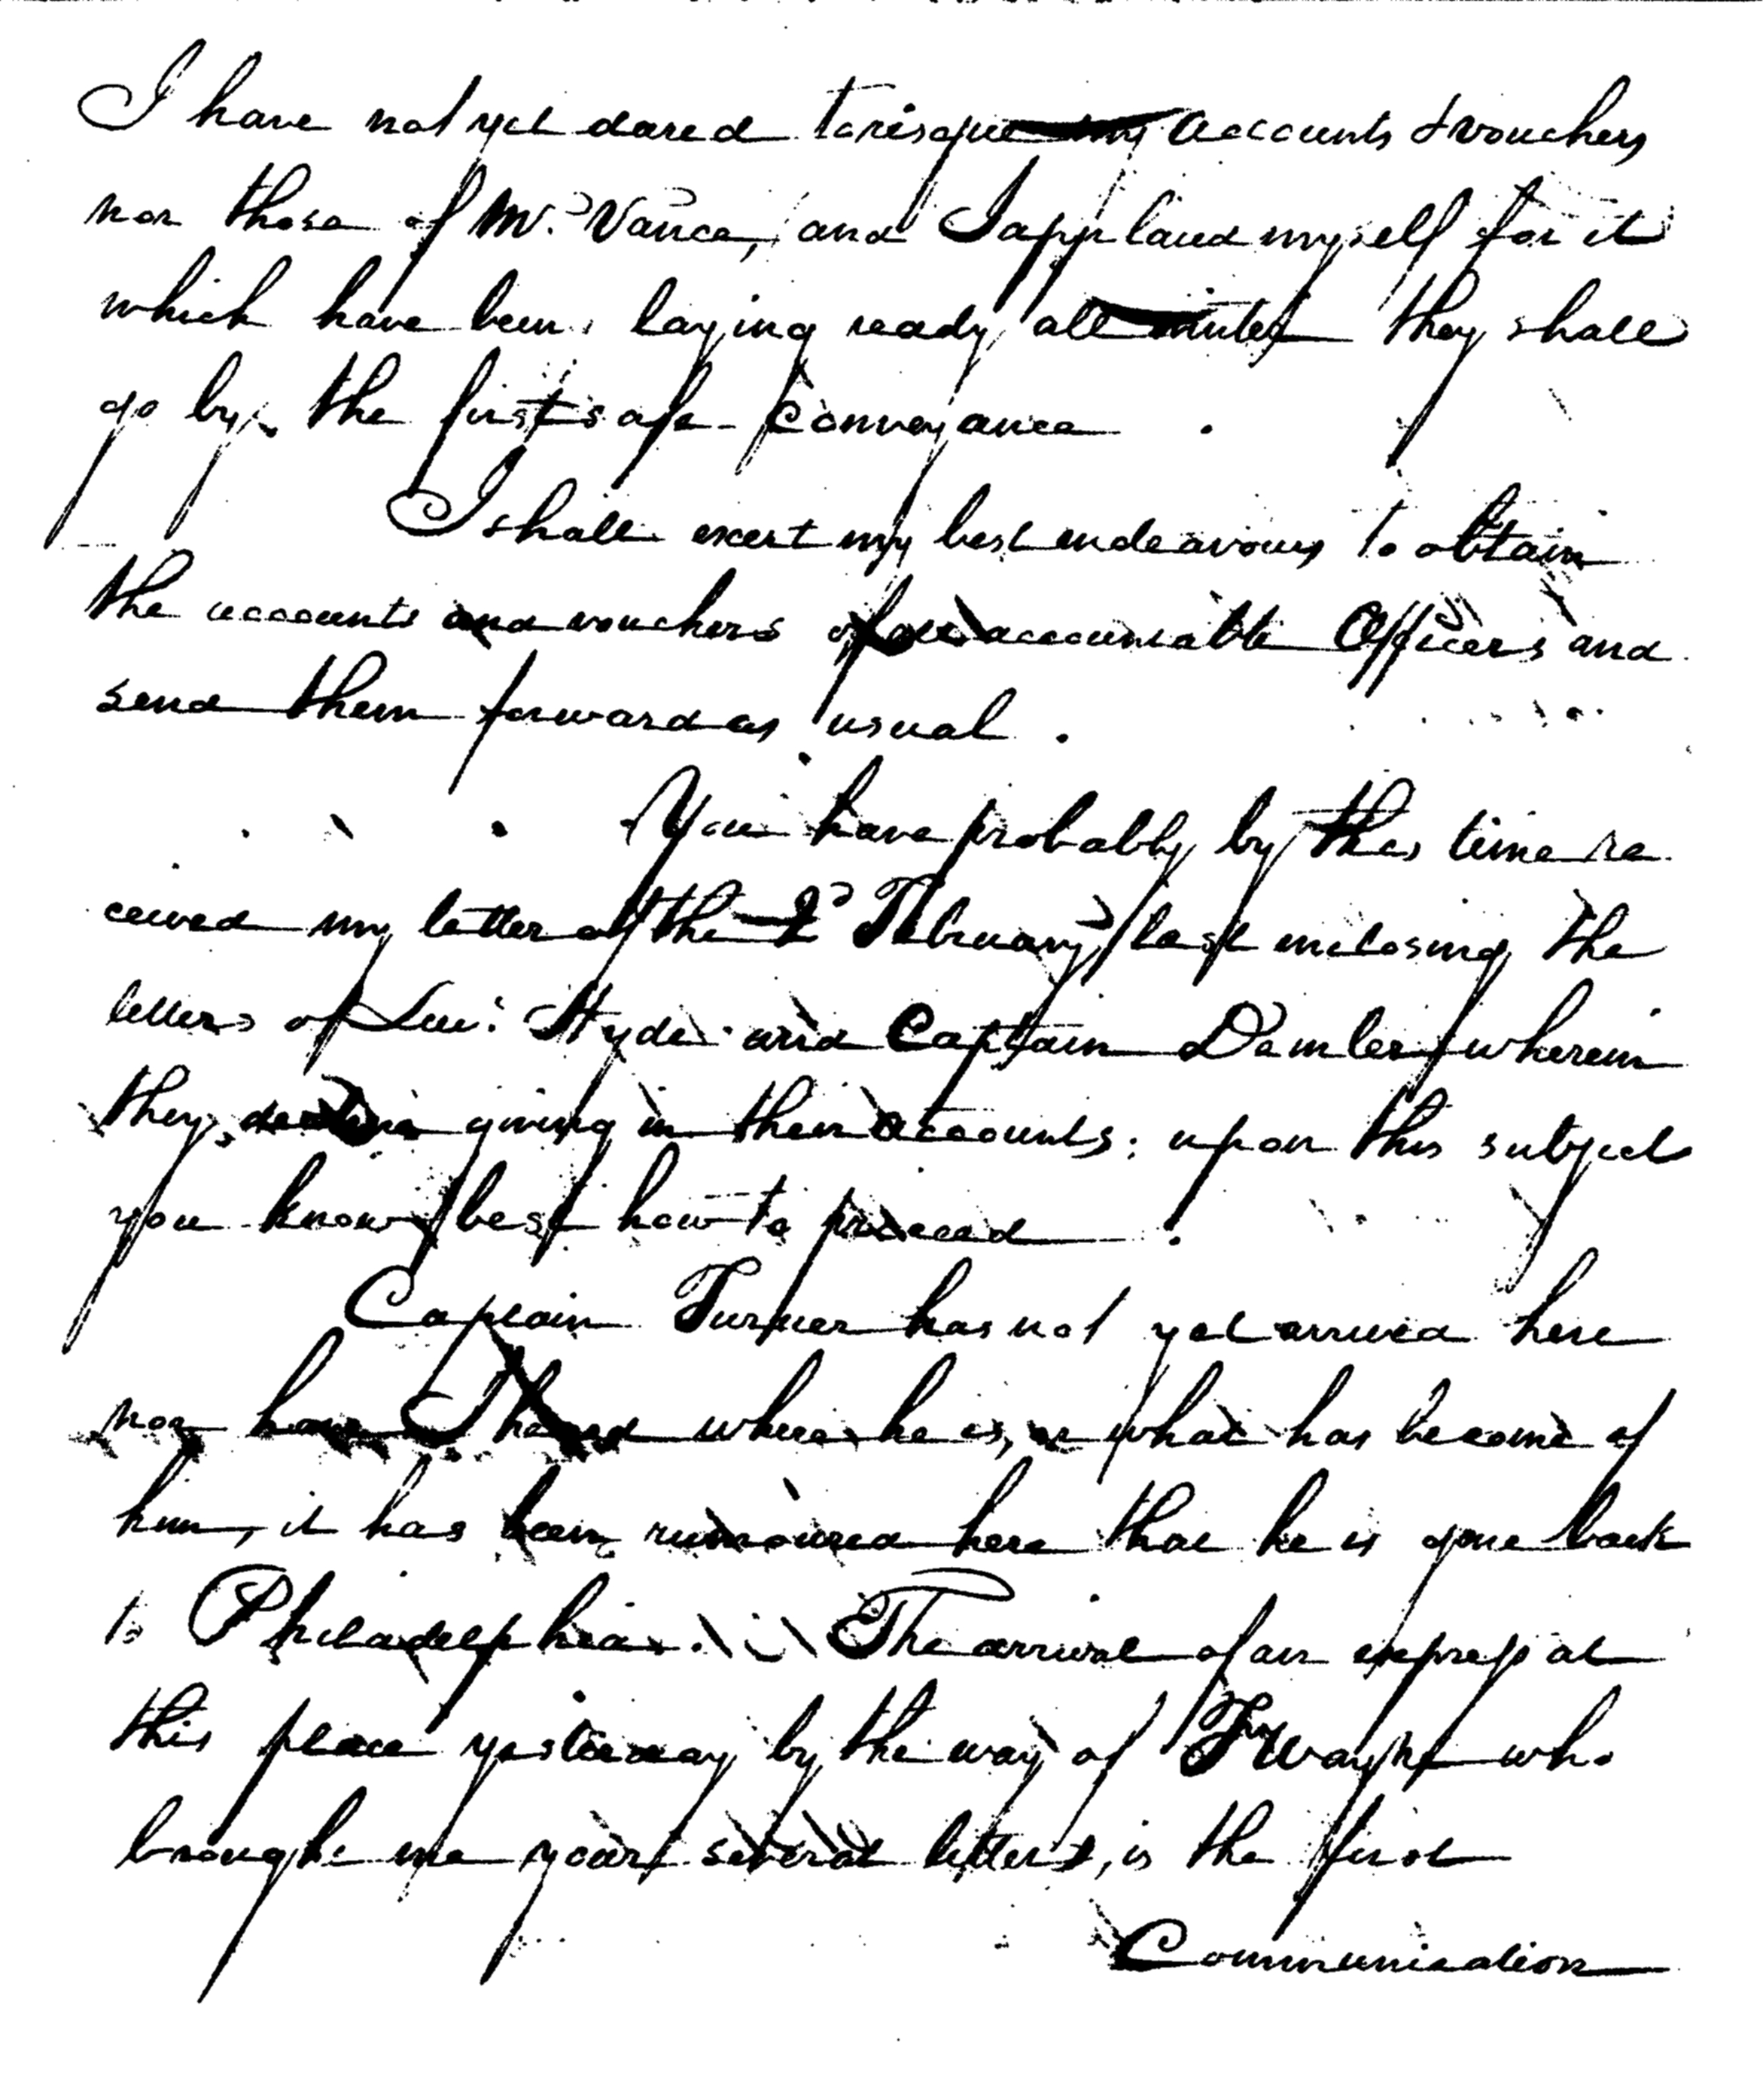 I have not yet dared to risque my accounts & vouchers
nor those of Mr. Vance, and I applaud myself for it
which have been laying ready all winter they shall
go by the first safe conveyance .
I shall exert my best endeavours to obtain
the accounts and vouchers of all accountable Officers and
send them forward as usual .
You have probably by this time re
ceived my letter of the 2d February last inclosing the
letters of Lieut. Hyde and Captain Demler wherein
they decline giving in their accounts: upon this subject
you know best how to proceed .
Captain Turner has not yet arrived here
nor have I heard where he is, or what has become of
him, it has been rumoured here that he is gone back
to Philadelphia. The arrival of an express at
this place yesterday by the way of Ft Wayne who
brought me your several letters, is the first
Communication